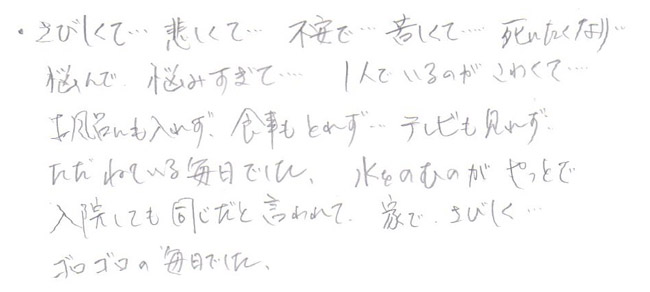 ・さびしくて… 悲しくて… 不安で… 苦しくて… 死にたくなり…
悩んで 悩みすぎて…. 1人でいるのがこわくて…
お風呂にも入れず、食事もとれず… テレビも見れず
ただねている毎日でした、水をのむのがやっとで
入院しても同じだと言われて、家で、さびしく…
ゴロゴロの毎日でした、